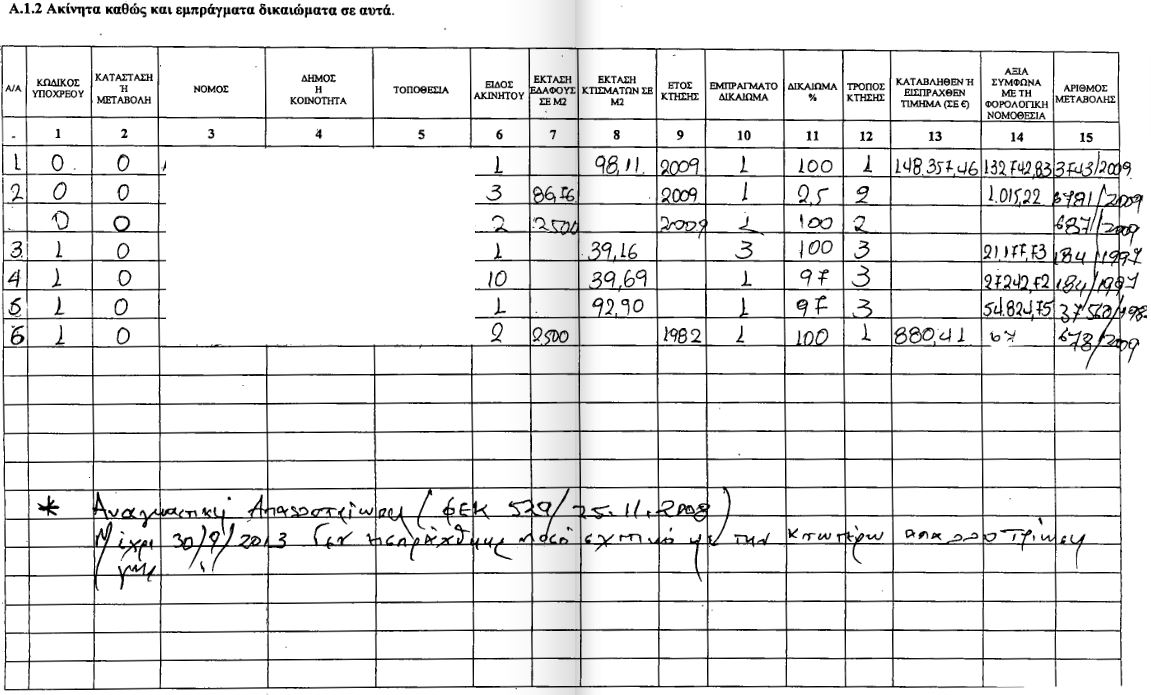 Α.1.2 Ακίνητα καθώς και εμπράγματα δικαιώματα σε αυτά.
Α/Α ΚΩΔΙΚΟΣ ΥΠΟΧΡΕΟΥ ΚΑΤΑΣΤΑΣΗ Ή ΜΕΤΑΒΟΛΗ ΝΟΜΟΣ ΔΗΜΟΣ Η ΚΟΙΝΟΤΗΤΑ ΤΟΠΟΘΕΣΙΑ ΕΙΔΟΣ ΑΚΙΝΗΤΟΥ ΕΚΤΑΣΗ ΕΔΑΦΟΥΣ ΣΕ Μ2 ΕΚΤΑΣΗ ΚΤΙΣΜΑΤΩΝ ΣΕ Μ2 ΕΤΟΣ ΚΤΗΣΗΣ ΕΜΠΡΑΓΜΑΤΟ ΔΙΚΑΙΩΜΑ ΔΙΚΑΙΩΜΑ % ΤΡΟΠΟΣ ΚΤΗΣΗΣ ΚΑΤΑΒΛΗΘΕΝ Ή ΕΙΣΠΡΑΧΘΕΝ ΤΙΜΗΜΑ (ΣΕ €) ΑΞΙΑ ΣΥΜΦΩΝΑ ΜΕ ΤΗ ΦΟΡΟΛΟΓΙΚΗ ΝΟΜΟΘΕΣΙΑ ΑΡΙΘΜΟΣ ΜΕΤΑΒΟΛΗΣ
- 1 2 3 4 5 6 7 8 9 10 11 12 13 14 15
1 0 0 1 98,11 2009 1 100 1 148.357,46 132.742,83 3743/2009
2 0 0 3 8676 2009 1 2,5 2 1.015,22 6781/2009
0 0 2 2500 2009 1 100 2 687/2009
3 1 0 1 39,16 3 100 3 21.177,73 184/1997
4 1 0 10 39,69 1 97 3 27242,72 184/1997
5 1 0 1 92,90 1 97 3 54.824,75
6 1 0 2 2500 1982 1 100 1 880,41 678/2009
* Αναγκαστική Απαλλοτρίωση (ΦΕΚ 529/25.11.2008)
Μέχρι 30/9/2013 δεν εισπράχθηκε ποσό σχετικό με την απαλλοτρίωση